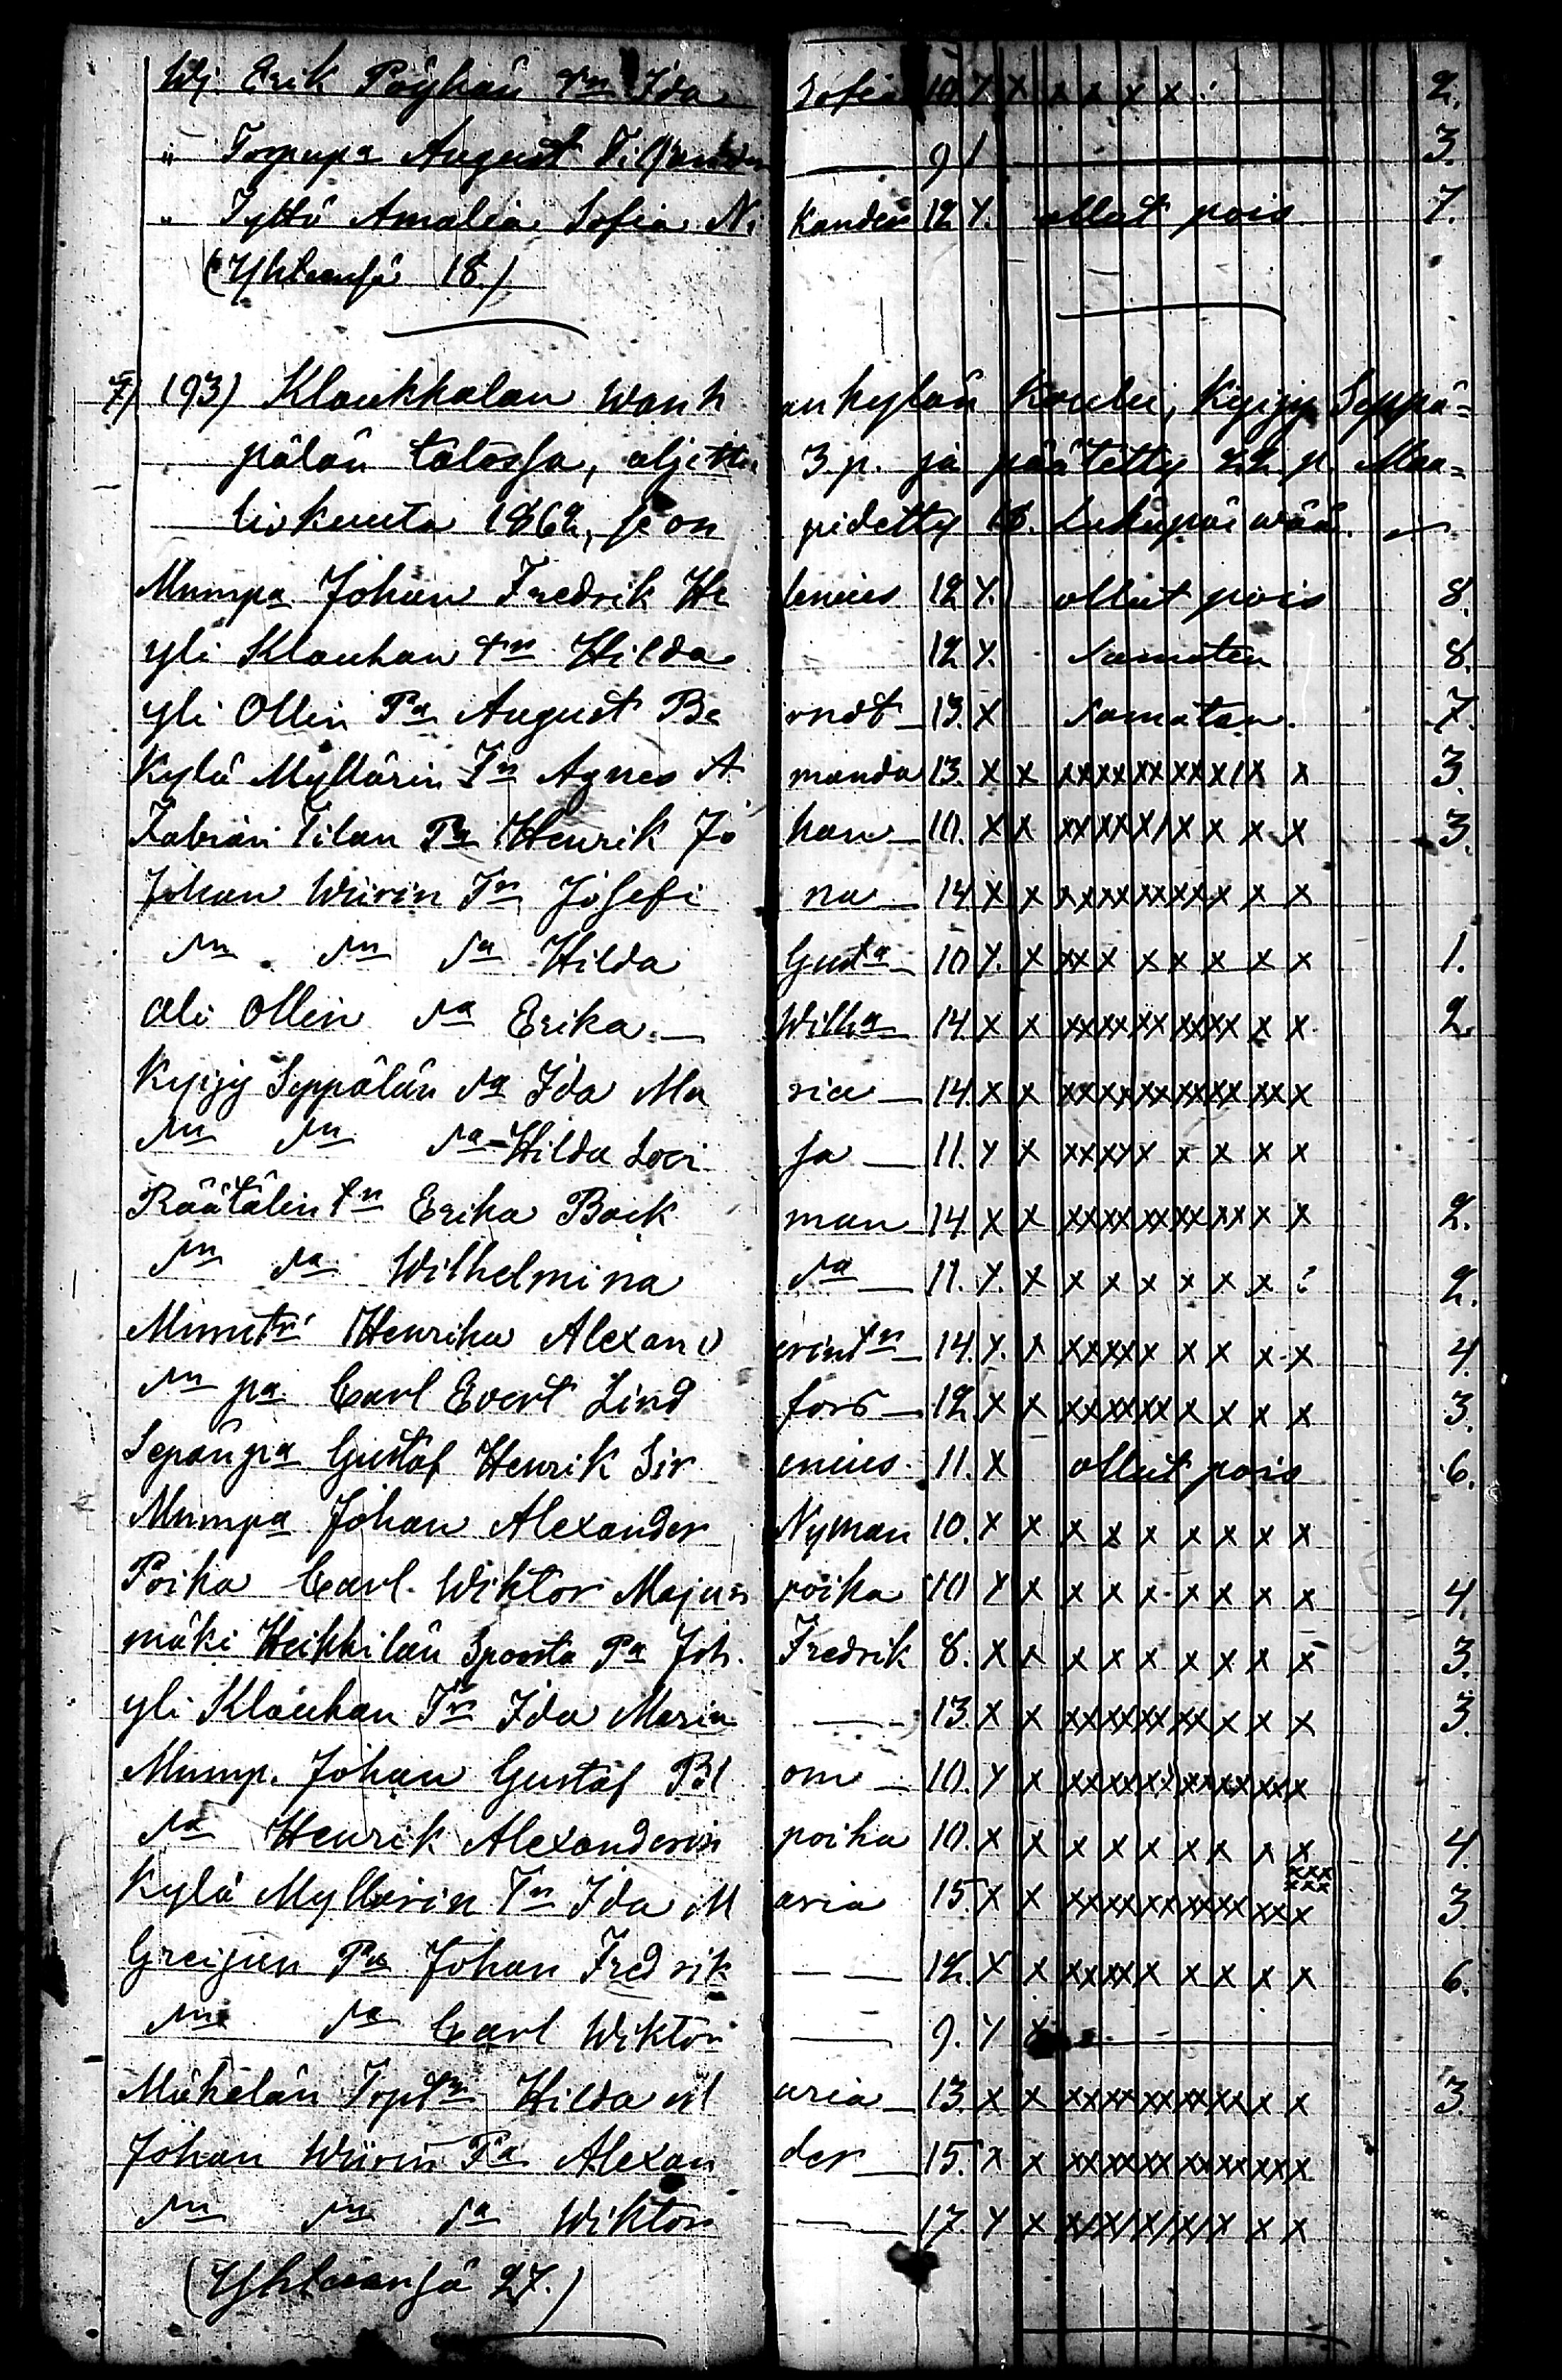 Wj. Erik Pöyhän Tn Ida Sofia 10. x x x x x x 2.
" Torpupa August Viljander — 9 / — 3.
" Tyttö Amalia Sofia Ni kander 12 x. ollut pois 7.
(Yhteensä 18.)
7) (93) Klaukkalan Wanh an kylän Koulu, Kyijy Seppä=
pälän talossa, aljettu 3 p. ja päätetty 22 p. Maa=
liskuuta 1862, se on pidetty 18. Lukupäiwää.
Mumpa Johan Fredrik He lenius 12 x. ollut pois 8.
yli Klauhan Tn Hilda 12 x. Samaten 8.
yli Ollin Pa August Be rndt — 13. x Samaten. 7.
Kylä Myllärin Tn Agnes A manda 13. x x xxxx xx xx x / x x 3.
Fabian Tilan Pa Henrik Jo han — 10. x x xx xx x / x x x x 3.
Johan Wiirin Tn Josefi na — 14 x x x xxx xx xx x x x
Sn Sn Sa Hilda Gusta — 10 x. x xx x x x x x x 1.
Ali Ollin Sa Erika — Wilha — 14. x x xxxx xx xxxx x x 2.
Kyijy Seppälän Sa Ida Ma ria — 14. x x xxxx xx xx xx xx x
Sn Sn Sa Hilda Lovi sa — 11. x x xxxx x x x x x
Räätälin tn Erika Back man — 14 x x xxxx xx xx xx x x 2.
Sn Sa Wilhelmina Sa — 11. x. x x x x x x x : 2.
Mumtn Henrika Alexand erintn — 14. x. x xxxx x x x x x 4.
Sn pa Carl Evert Lind fors — 12. x x xxxx xx x x x x 3.
Sepänpa Gustaf Henrik Sir enius. 11. x ollut pois 6.
Mumpa Johan Alexander Nyman 10. x x x x x x x x x
Poika Carl Wiktor Majus poika 10 x x x x x x x x x 4.
mäki Heikkilän Sposta Pa Joh. Fredrik 8. x x x x x x x x x 3.
yli Klauhan Tn Ida Maria — 13. x x xxxx xx xx x x x 3.
Mump. Johan Gustaf Bl om — 10. x x xxxx xx xx xx xx x
Sa Henrik Alexanderin poika 10. x x x x x x x x x 4.
Kylä Myllärin Tn Ida M aria 15. x x xxxx xx xx xx xx x xxx xxx 3
Greijun Pa Johan Fredrik — — 12. x x xxxx x x x x x 6.
Sn Sa Carl Wiktor — 9. x
Mähelän Toptn Hilda M aria — 13. x x xxxx xx xx xx x x 3.
Johan Wiirin Pa Alexan der — 15. x x xxxx xx xx xx xx x
Sn Sn Sa Wiktor — 17. x x x / x / x / x / x x x
(Yhteensä 27.)